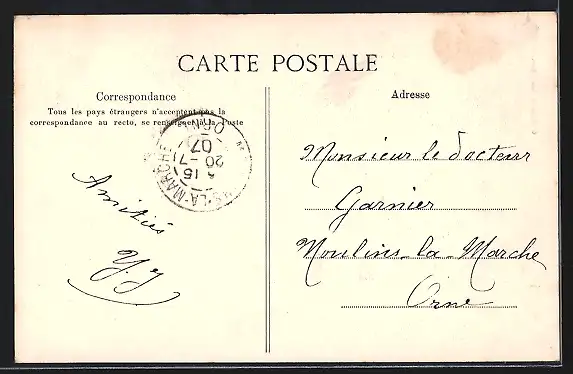 CARTE POSTALE
Correspondance
Tous les pays étrangers n'acceptent pas la
correspondance au recto, se renseigner à la Poste
Amitiés
Y. J
LA-MARCHE
ORNE
15
20 -7
07
Adresse
Monsieur le docteur
Garnier
Moulins-la-Marche
Orne